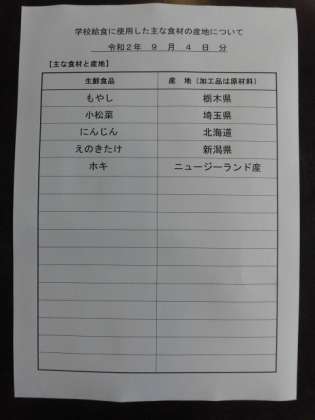 学校給食に使用した主な食材の産地について
令和2年 9 月 4 日 分
【主な食材と産地】
生鮮食品 産 地（加工品は原材料）
もやし 栃木県
小松菜 埼玉県
にんじん 北海道
えのきたけ 新潟県
ホキ ニュージーランド産